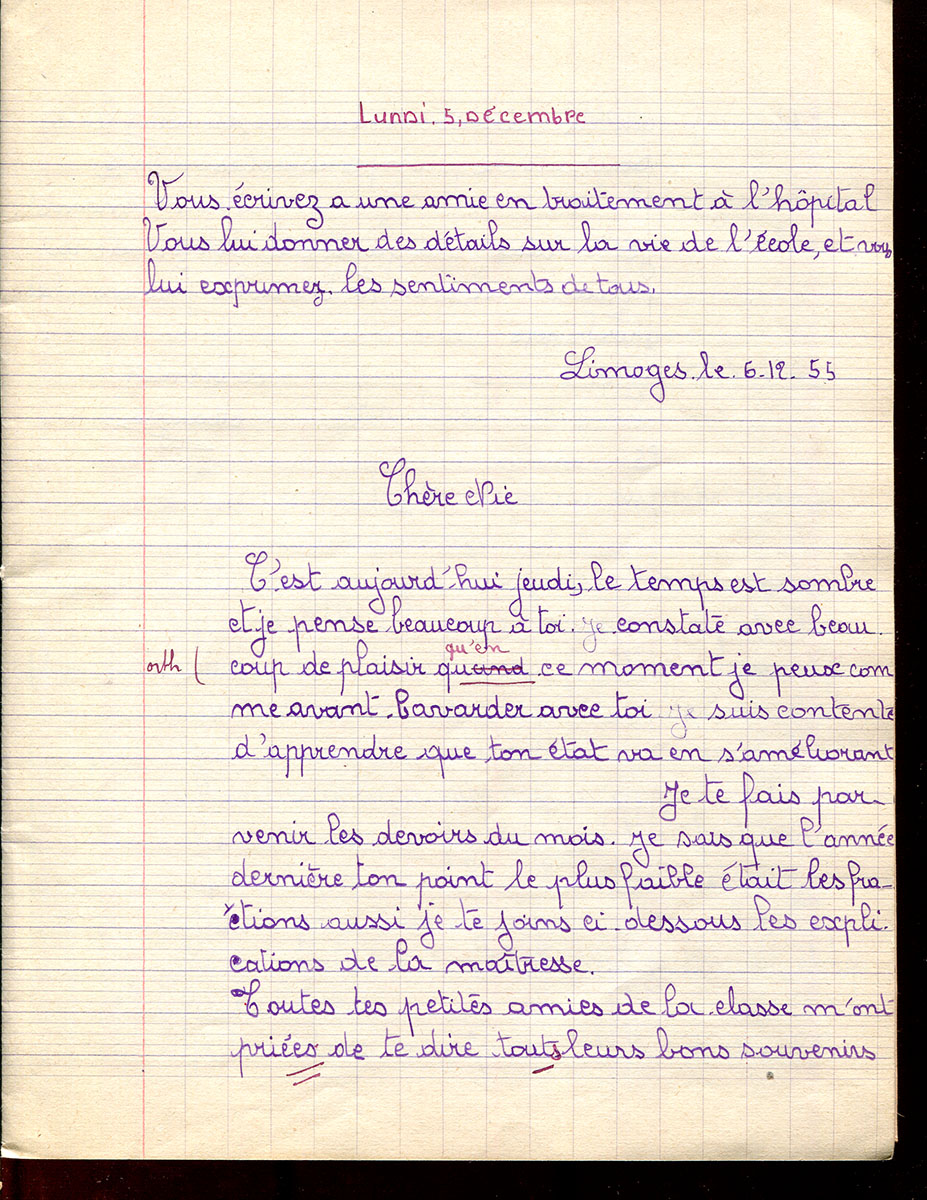 Lundi. 5, Décembre
Vous écrivez a une amie en traitement à l'hôpital
Vous lui donner des détails sur la vie de l'école, et vous
lui exprimez. les sentiments de tous.
Limoges. le. 6-12. 55
Chère
C'est aujourd'hui jeudi, le temps est sombre
et je pense beaucoup à toi. je constate avec beau.
qu'en
orth ( coup de plaisir quand ce moment je peux com
me avant. bavarder avec toi je suis contente
d'apprendre que ton état va en s'améliorant
Je te fais par-
venir les devoirs du mois. je sais que l'année
dernière ton point le plus faible était les fra-
ctions aussi je te joins ci-dessous les expli.
cations de la maîtresse.
Toutes tes petites amies de la classe m'ont
priées de te dire touts leurs bons souvenirs